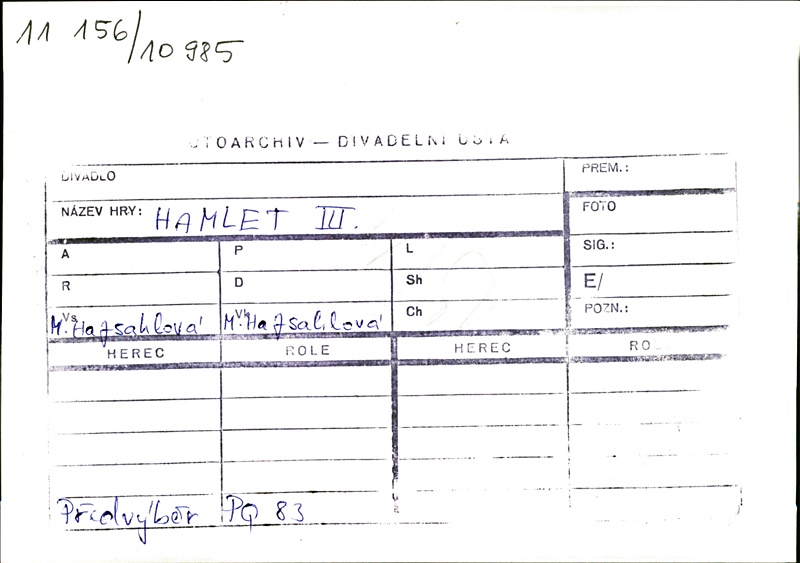 11 156/10 985
OTOARCHIV — DIVADELNÍ ÚSTA
DIVADLO
PREM.:
NÁZEV HRY: HAMLET III.
FOTO
A P L SIG.:
R D Sh E/
Vs M. Hajsahlová Vk M. Hajsalilová Ch POZN.:
HEREC ROLE HEREC RO
Předvýběr PQ 83